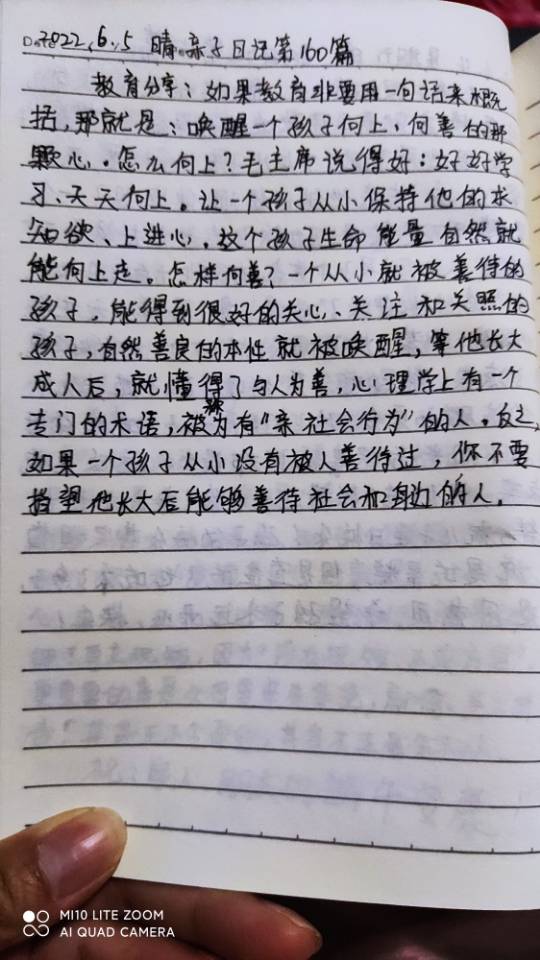 Date 2022.6.5 晴 亲子日记第160篇
教育分享：如果教育非要用一句话来概
括，那就是：唤醒一个孩子向上、向善的那
颗心。怎么向上？毛主席说得好：好好学
习、天天向上。让一个孩子从小保持他的求
知欲、上进心，这个孩子生命能量自然就
能向上走。怎样向善？一个从小就被善待的
孩子，能得到很好的关心、关注和关照的
孩子，自然善良的本性就被唤醒，等他长大
成人后，就懂得了与人为善，心理学上有一个
专门的术语，被称为有“亲社会行为”的人。反之，
如果一个孩子从小没有被人善待过，你不要
指望他长大后能够善待社会和身边的人。
MI10 LITE ZOOM
AI QUAD CAMERA